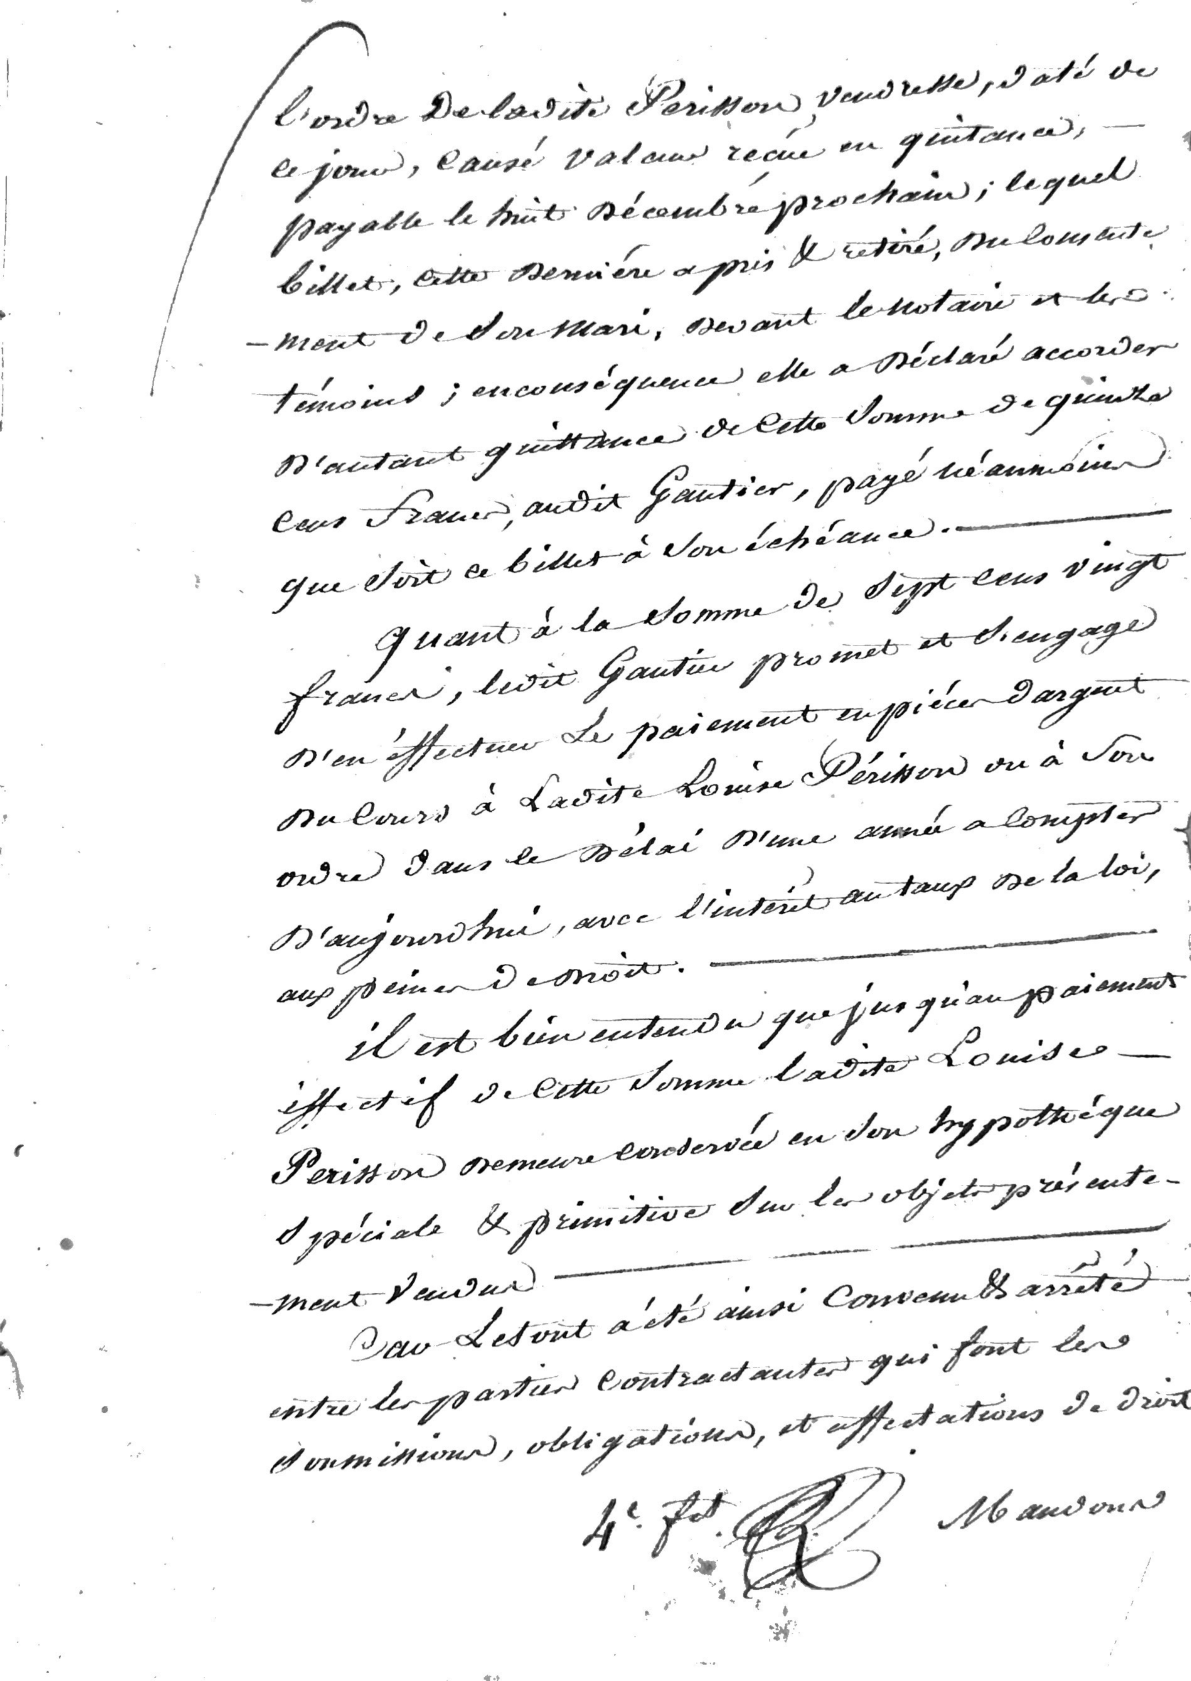 l'ordre de ladite Perisson, venderesse, daté de
ce jour, causé valeur reçue en quitance,
payable le huit décembre prochain; lequel
billet, cette derniére a pris & retiré, du consente
-ment de son mari, devant le notaire et les
témoins; en conséquence elle a déclaré accorder
d'autant quittance de cette somme de quinze
cens francs, audit Gautier, payé néanmoins
que soit ce billet à son échéance.
Quant à la somme de sept cens vingt
francs, ledit Gautier promet et s'engage
d'en éffectuer le paiement en piéces d'argent
du cours à Ladite Louise Périsson ou à son
ordre dans le délai d'une année a compter
d'aujourd'hui, avec l'intérêt au taux de la loi,
aux peines de droit.
il est bien entendu que jusqu'au paiement
éffectif de cette somme ladite Louise
Perisson demeure conservée en son hypothéque
spéciale & primitive sur les objets présente-
-ment vendus
Car Le tout a été ainsi convenu & arrêté
entre les parties contractantes qui font les
soumissions, obligations, et affectations de droit
4e. fet. Mandons